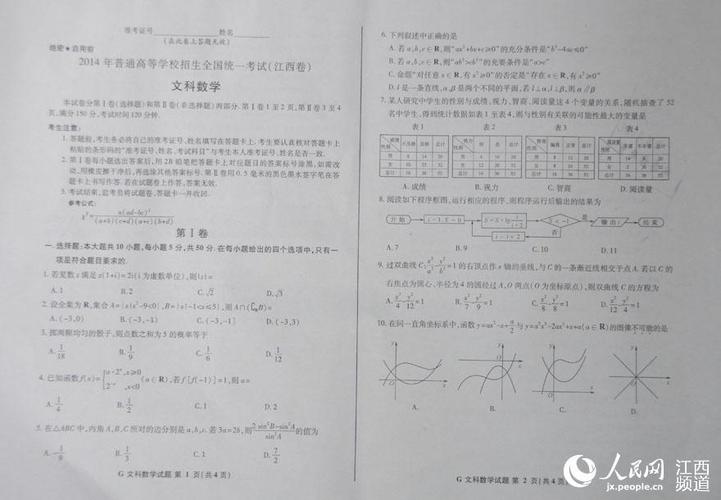 准考证号 姓名
(在此卷上答题无效)
绝密★启用前
2014年普通高等学校招生全国统一考试(江西卷)
文科数学
本试卷分第Ⅰ卷(选择题)和第Ⅱ卷(非选择题)两部分.第Ⅰ卷1至2页,第Ⅱ卷3至4
页,满分150分,考试时间120分钟.
考生注意:
1.答题前,考生务必将自己的准考证号、姓名填写在答题卡上.考生要认真核对答题卡上
粘贴的条形码的"准考证号、姓名、考试科目"与考生本人准考证号、姓名是否一致.
2.第Ⅰ卷每小题选出答案后,用2B铅笔把答题卡上对应题目的答案标号涂黑,如需改
动,用橡皮擦干净后,再选涂其他答案标号.第Ⅱ卷用0.5毫米的黑色墨水签字笔在答
题卡上书写作答.若在试题卷上作答,答案无效.
3.考试结束,监考员将试题卷、答题卡一并收回.
参考公式:
χ²=n(ad-bc)²/(a+b)(c+d)(a+c)(b+d)
第Ⅰ卷
一.选择题:本大题共10小题,每小题5分,共50分.在每小题给出的四个选项中,只有一
项是符合题目要求的.
1.若复数z满足z(1+i)=2i(i为虚数单位),则|z|=
A.1 B.2 C.√2 D.√3
2.设全集为R,集合A={x|x²-9<0},B={x|-1<x≤5},则A∩(∁RB)=
A.(-3,0) B.(-3,-1) C.(-3,-1] D.(-3,3)
3.掷两颗均匀的骰子,则点数之和为5的概率等于
A.1/18 B.1/9 C.1/6 D.1/12
4.已知函数f(x)={a·2ˣ,x≥0 2⁻ˣ,x<0 (a∈R),若f[f(-1)]=1,则a=
A.1/4 B.1/2 C.1 D.2
5.在△ABC中,内角A,B,C所对的边分别是a,b,c.若3a=2b,则2sin²B-sin²A/sin²A的值为
A.-1/9 B.1/3 C.1 D.7/2
G文科数学试题 第1页(共4页)
6.下列叙述中正确的是
A.若a,b,c∈R,则"ax²+bx+c≥0"的充分条件是"b²-4ac≤0"
B.若a,b,c∈R,则"ab²>cb²"的充要条件是"a>c"
C.命题"对任意x∈R,有x²≥0"的否定是"存在x∈R,有x²≥0"
D.l是一条直线,α,β是两个不同的平面,若l⊥α,l⊥β,则α∥β
7.某人研究中学生的性别与成绩、视力、智商、阅读量这4个变量的关系,随机抽查了52
名中学生,得到统计数据如表1至表4,则与性别有关联的可能性最大的变量是
表1 表2 表3 表4
A.成绩 B.视力 C.智商 D.阅读量
8.阅读如下程序框图,运行相应的程序,则程序运行后输出的结果为
开始 i=1,S=0 S=S+lg i/i+2 S<-1 否 输出i 结束
i=i+2
A.7 B.9 C.10 D.11
9.过双曲线C:x²/a²-y²/b²=1的右顶点作x轴的垂线,与C的一条渐近线相交于点A.若以C的
右焦点为圆心、半径为4的圆经过A,O两点(O为坐标原点),则双曲线C的方程为
A.x²/4-y²/12=1 B.x²/7-y²/9=1 C.x²/8-y²/8=1 D.x²/12-y²/4=1
10.在同一直角坐标系中,函数y=ax²-x+a/2与y=a²x³-2ax²+x+a(a∈R)的图像不可能的是
A. B. C. D.
G文科数学试题 第2页(共4页)
人民网
jx.people.cn
江西
频道